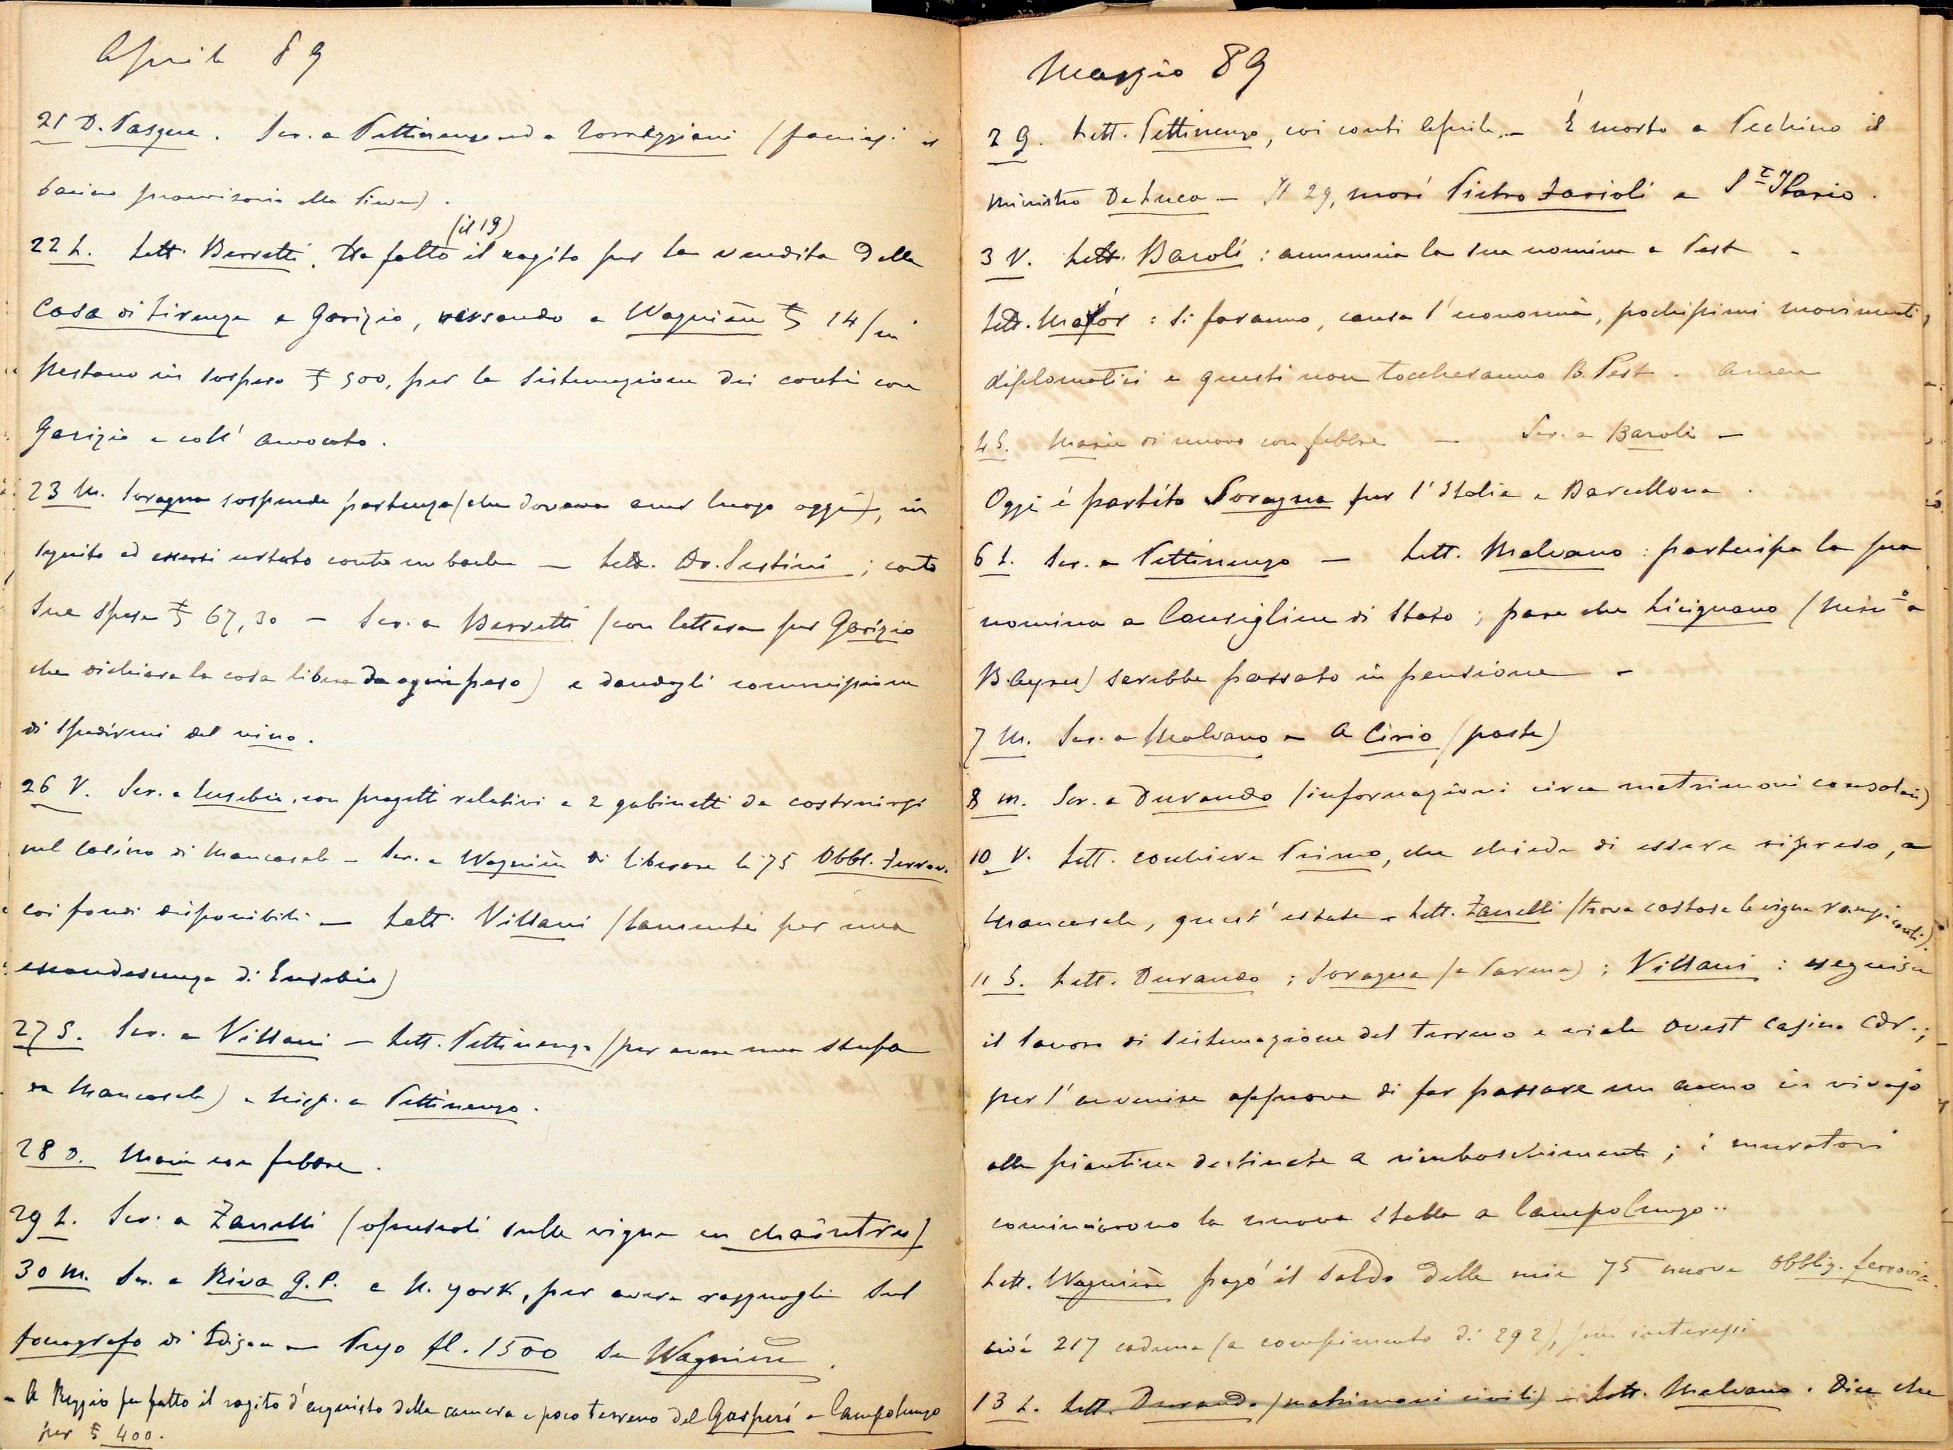 Aprile 89
21 D. Pasqua. Scr. a Pettinengo ed a Torreggiani (facciasi il
bacino provvisorio alla Pieve).
(il 19)
22 L. Lett. Berretti. Ha fatto il rogito per la vendita della
Casa di Firenze a Garizio, versando a Wagnière ₤ 14/m
Restano in sospeso ₤ 500, per la sistemazione dei conti con
Garizio e coll' avvocato.
23 M. Soragna sospende partenza (che doveva aver luogo oggi), in
seguito ad essersi
sue spese ₤ 67,30 — Scr. a Berretti (con lettera per Garizio
che dichiara la casa libera da ogni peso) e dandogli commissione
di spedirmi del vino.
26 V. Scr. a Eusebio, con progetti relativi a 2 gabinetti da costruirsi
nel Casino di Mancasale — Scr. a Wagnière di liberare le 75 Obbl. Ferrov.
coi fondi disponibili — Lett. Villani (lamenti per una
escandescenza di Eusebio)
27 S. Scr. a Villani — Lett. Pettinengo (per avere una stufa
da Mancasale) e Risp. a Pettinengo.
28 D. Maria con febbre.
29 L. Scr. a Zanelli (opuscoli sulla vigna en chaintres)
30 M. Scr. a Riva G.P. a N. York, per avere ragguagli sul
fonografo di Edison — Prego fl. 1500 da Wagnière.
- A Reggio fu fatto il rogito d'acquisto della camera e poco terreno del Gasperò a Campolungo
per ₤ 400.
Maggio 89
2 G. Lett. Pettinengo, coi conti Aprile. — È morto a Pechino il
ministro De Luca — Il 29, morì Pietro Farioli a St Ilario.
3 V. Lett. Baroli: annunzia la sua nomina a Pest -
Lett. Mayor: Si faranno, causa l'economia, pochissimi movimenti
diplomatici e questi non toccheranno B. Pest. Amen
4 S. Maria di nuovo con febbre — Scr. a Baroli —
Oggi è partito Soragna per l'Italia e Barcellona.
6 L. Scr. a Pettinengo — Lett. Malvano: partecipa la sua
nomina a Consigliere di Stato; pare che Licignano (Minо a
B. Ayres) sarebbe passato in pensione -
7 M. Scr. a Malvano e a Cirio (poste)
8 M. Scr. a Durando (informazioni circa matrimoni consolari)
10 V. Lett. cocchiere Primo, che chiede di essere ripreso, a
Mancasale, quest' estate - Lett. Zanelli (trova costose le vigne rampicanti).
11 S. Lett. Durando; Soragna (a Parma); Villani: eseguisce
il lavoro di sistemazione del terreno e viale ovest casino Cdr.;
per l'avvenire approva di far passare un anno in vivajo
alle piantine destinate a rimboschimenti; i muratori
cominciarono la nuova stalla a Campolungo..
Lett. Wagnière pagò il saldo delle mie 75 nuove Obblig. ferrovia.
cioè 217 caduna (a compimento di 292), più interessi
13 L. Lett. Durando (matrimoni civili) — Lett. Malvano. Dice che